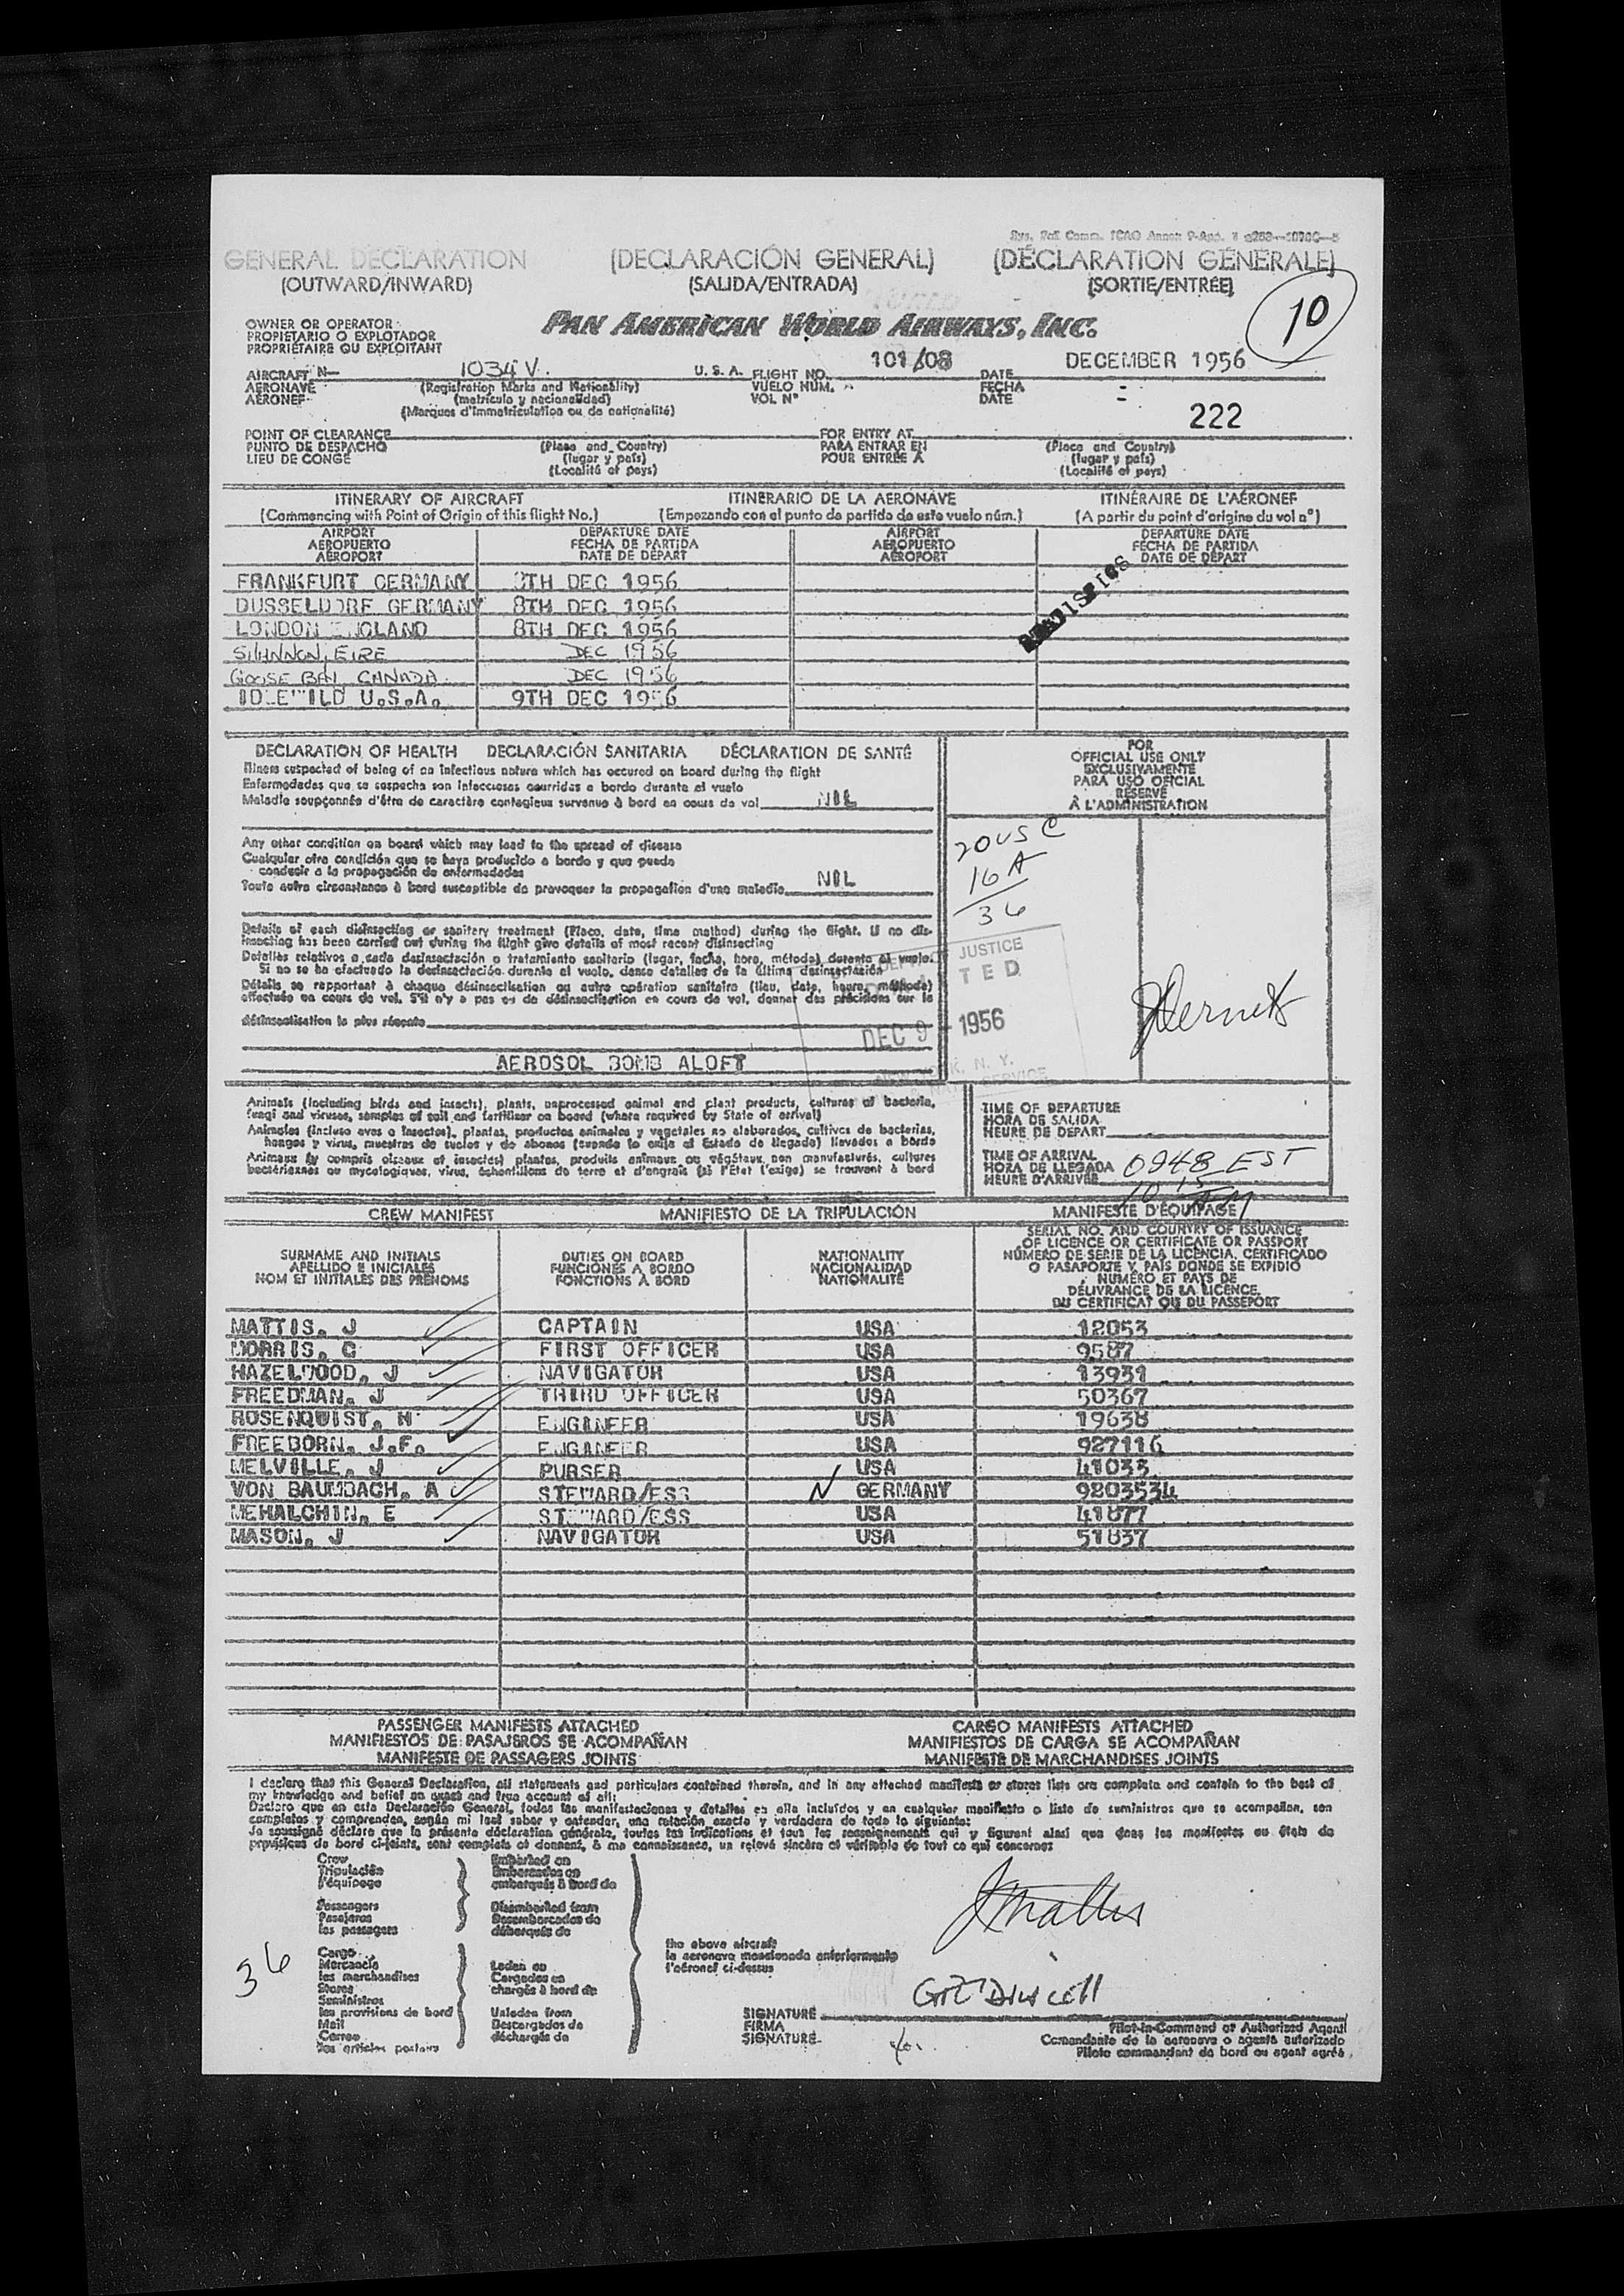 GENERAL DECLARATION (DECLARACIÓN GENERAL) (DÉCLARATION GÉNÉRALE)
(OUTWARD/INWARD) (SALIDA/ENTRADA) (SORTIE/ENTRÉE)
10
OWNER OR OPERATOR
PROPIETARIO O EXPLOTADOR
PROPRIÉTAIRE OU EXPLOITANT
PAN AMERICAN WORLD AIRWAYS, INC.
AIRCRAFT N— 1034V. U. S. A. FLIGHT NO. 101/08 DATE DECEMBER 1956
AERONAVE (Registration Marks and Nationality) VUELO NUM. FECHA
AÉRONEF (matrícula y nacionalidad) VOL Nº DATE
(Marques d'immatriculation ou de nationalité)
222
POINT OF CLEARANCE FOR ENTRY AT
PUNTO DE DESPACHO (Place and Country) PARA ENTRAR EN (Place and Country)
LIEU DE CONGÉ (lugar y país) POUR ENTRÉE À (lugar y país)
(Localité et pays) (Localité et pays)
ITINERARY OF AIRCRAFT ITINERARIO DE LA AERONAVE ITINÉRAIRE DE L'AÉRONEF
(Commencing with Point of Origin of this flight No.) (Empezando con el punto de partida de este vuelo núm.) (A partir du point d'origine du vol nº)
AIRPORT DEPARTURE DATE AIRPORT DEPARTURE DATE
AEROPUERTO FECHA DE PARTIDA AEROPUERTO FECHA DE PARTIDA
AÉROPORT DATE DE DÉPART AÉROPORT DATE DE DÉPART
FRANKFURT GERMANY 8TH DEC 1956
DUSSELDORF GERMANY 8TH DEC 1956
LONDON ENGLAND 8TH DEC 1956
SHANNON, EIRE DEC 1956
GOOSE BAY, CANADA DEC 1956
IDLEWILD U.S.A. 9TH DEC 1956
DECLARATION OF HEALTH DECLARACIÓN SANITARIA DÉCLARATION DE SANTÉ
Illness suspected of being of an infectious nature which has occured on board during the flight
Enfermedades que se sospecha son infecciosas ocurridas a bordo durante el vuelo
Maladie soupçonnée d'être de caractère contagieux survenue à bord en cours de vol NIL
Any other condition on board which may lead to the spread of disease
Cualquier otra condición que se haya producido a bordo y que pueda
conducir a la propagación de enfermedades
Toute autre circonstance à bord susceptible de provoquer la propagation d'une maladie NIL
Details of each disinsecting or sanitary treatment (Place, date, time method) during the flight. If no dis-
insecting has been carried out during the flight give details of most recent disinsecting
Detalles relativos a cada desinsectación o tratamiento sanitario (lugar, fecha, hora, método) durante el vuelo.
Si no se ha efectuado la desinsectación durante el vuelo, dense detalles de la última desinsectación
Détails se rapportant à chaque désinsectisation ou autre opération sanitaire (lieu, date, heure, méthode)
effectuée en cours de vol. S'il n'y a pas eu de désinsectisation en cours de vol, donner des précisions sur la
désinsectisation la plus récente
AEROSOL BOMB ALOFT
FOR
OFFICIAL USE ONLY
EXCLUSIVAMENTE
PARA USO OFICIAL
RÉSERVÉ
À L'ADMINISTRATION
20 US C
16 A
36
DEPT. OF JUSTICE
DEC 9 - 1956
NEW YORK, N. Y.
SERVICE
Animals (including birds and insects), plants, unprocessed animal and plant products, cultures of bacteria,
fungi and viruses, samples of soil and fertilizer on board (where required by State of arrival)
Animales (incluso aves e insectos), plantas, productos animales y vegetales no elaborados, cultivos de bacterias,
hongos y virus, muestras de suelos y de abonos (cuando lo exija el Estado de llegada) llevados a bordo
Animaux (y compris oiseaux et insectes) plantes, produits animaux ou végétaux non manufacturés, cultures
bactériennes ou mycologiques, virus, échantillons de terre et d'engrais (si l'État l'exige) se trouvant à bord
TIME OF DEPARTURE
HORA DE SALIDA
HEURE DE DÉPART
TIME OF ARRIVAL
HORA DE LLEGADA 0948 EST
HEURE D'ARRIVÉE 10 15 AM
CREW MANIFEST MANIFIESTO DE LA TRIPULACIÓN MANIFESTE D'ÉQUIPAGE
SURNAME AND INITIALS DUTIES ON BOARD NATIONALITY SERIAL NO. AND COUNTRY OF ISSUANCE
APELLIDO E INICIALES FUNCIONES A BORDO NACIONALIDAD OF LICENCE OR CERTIFICATE OR PASSPORT
NOM ET INITIALES DES PRÉNOMS FONCTIONS À BORD NATIONALITÉ NÚMERO DE SERIE DE LA LICENCIA, CERTIFICADO
O PASAPORTE Y PAÍS DONDE SE EXPIDIÓ
NUMÉRO ET PAYS DE
DÉLIVRANCE DE LA LICENCE,
DU CERTIFICAT OU DU PASSEPORT
MATTIS, J CAPTAIN USA 12053
MORRIS, G FIRST OFFICER USA 9587
HAZELWOOD, J NAVIGATOR USA 13931
FREEDMAN, J THIRD OFFICER USA 50367
ROSENQUIST, H ENGINEER USA 19638
FREEBORN, J.F. ENGINEER USA 927116
MELVILLE, J PURSER USA 41033
VON BAUMBACH, A STEWARD/ESS GERMANY 9803534
MEHALCHIN, E STEWARD/ESS USA 41877
MASON, J NAVIGATOR USA 51837
PASSENGER MANIFESTS ATTACHED CARGO MANIFESTS ATTACHED
MANIFIESTOS DE PASAJEROS SE ACOMPAÑAN MANIFIESTOS DE CARGA SE ACOMPAÑAN
MANIFESTE DE PASSAGERS JOINTS MANIFESTE DE MARCHANDISES JOINTS
I declare that this General Declaration, all statements and particulars contained therein, and in any attached manifests or stores lists are complete and contain to the best of
my knowledge and belief an exact and true account of all:
Declaro que en esta Declaración General, todas las manifestaciones y detalles en ella incluídos y en cualquier manifiesto o lista de suministros que se acompañan, son
completos y comprenden, según mi leal saber y entender, una relación exacta y verdadera de todo lo siguiente:
Je soussigné déclare que la présente déclaration générale, toutes les indications et tous les renseignements qui y figurent ainsi que dans les manifestes ou états de
provisions de bord ci-joints, sont complets et donnent, à ma connaissance, un relevé sincère et véritable de tout ce qui concerne:
Crew Embarked on
Tripulación Embarcados en
l'équipage embarqués à bord de
Passengers Disembarked from
Pasajeros Desembarcados de
les passagers débarqués de
36
Cargo
Mercancía Laden on
les marchandises Cargados en
Stores chargés à bord de
Suministros
les provisions de bord Unladen from
Mail Descargados de
Correo déchargés de
les articles postaux
the above aircraft
la aeronave mencionada anteriormente
l'aéronef ci-dessus
SIGNATURE
FIRMA
SIGNATURE
Pilot-in-Command or Authorized Agent
Comandante de la aeronave o agente autorizado
Pilote commandant de bord ou agent agréé